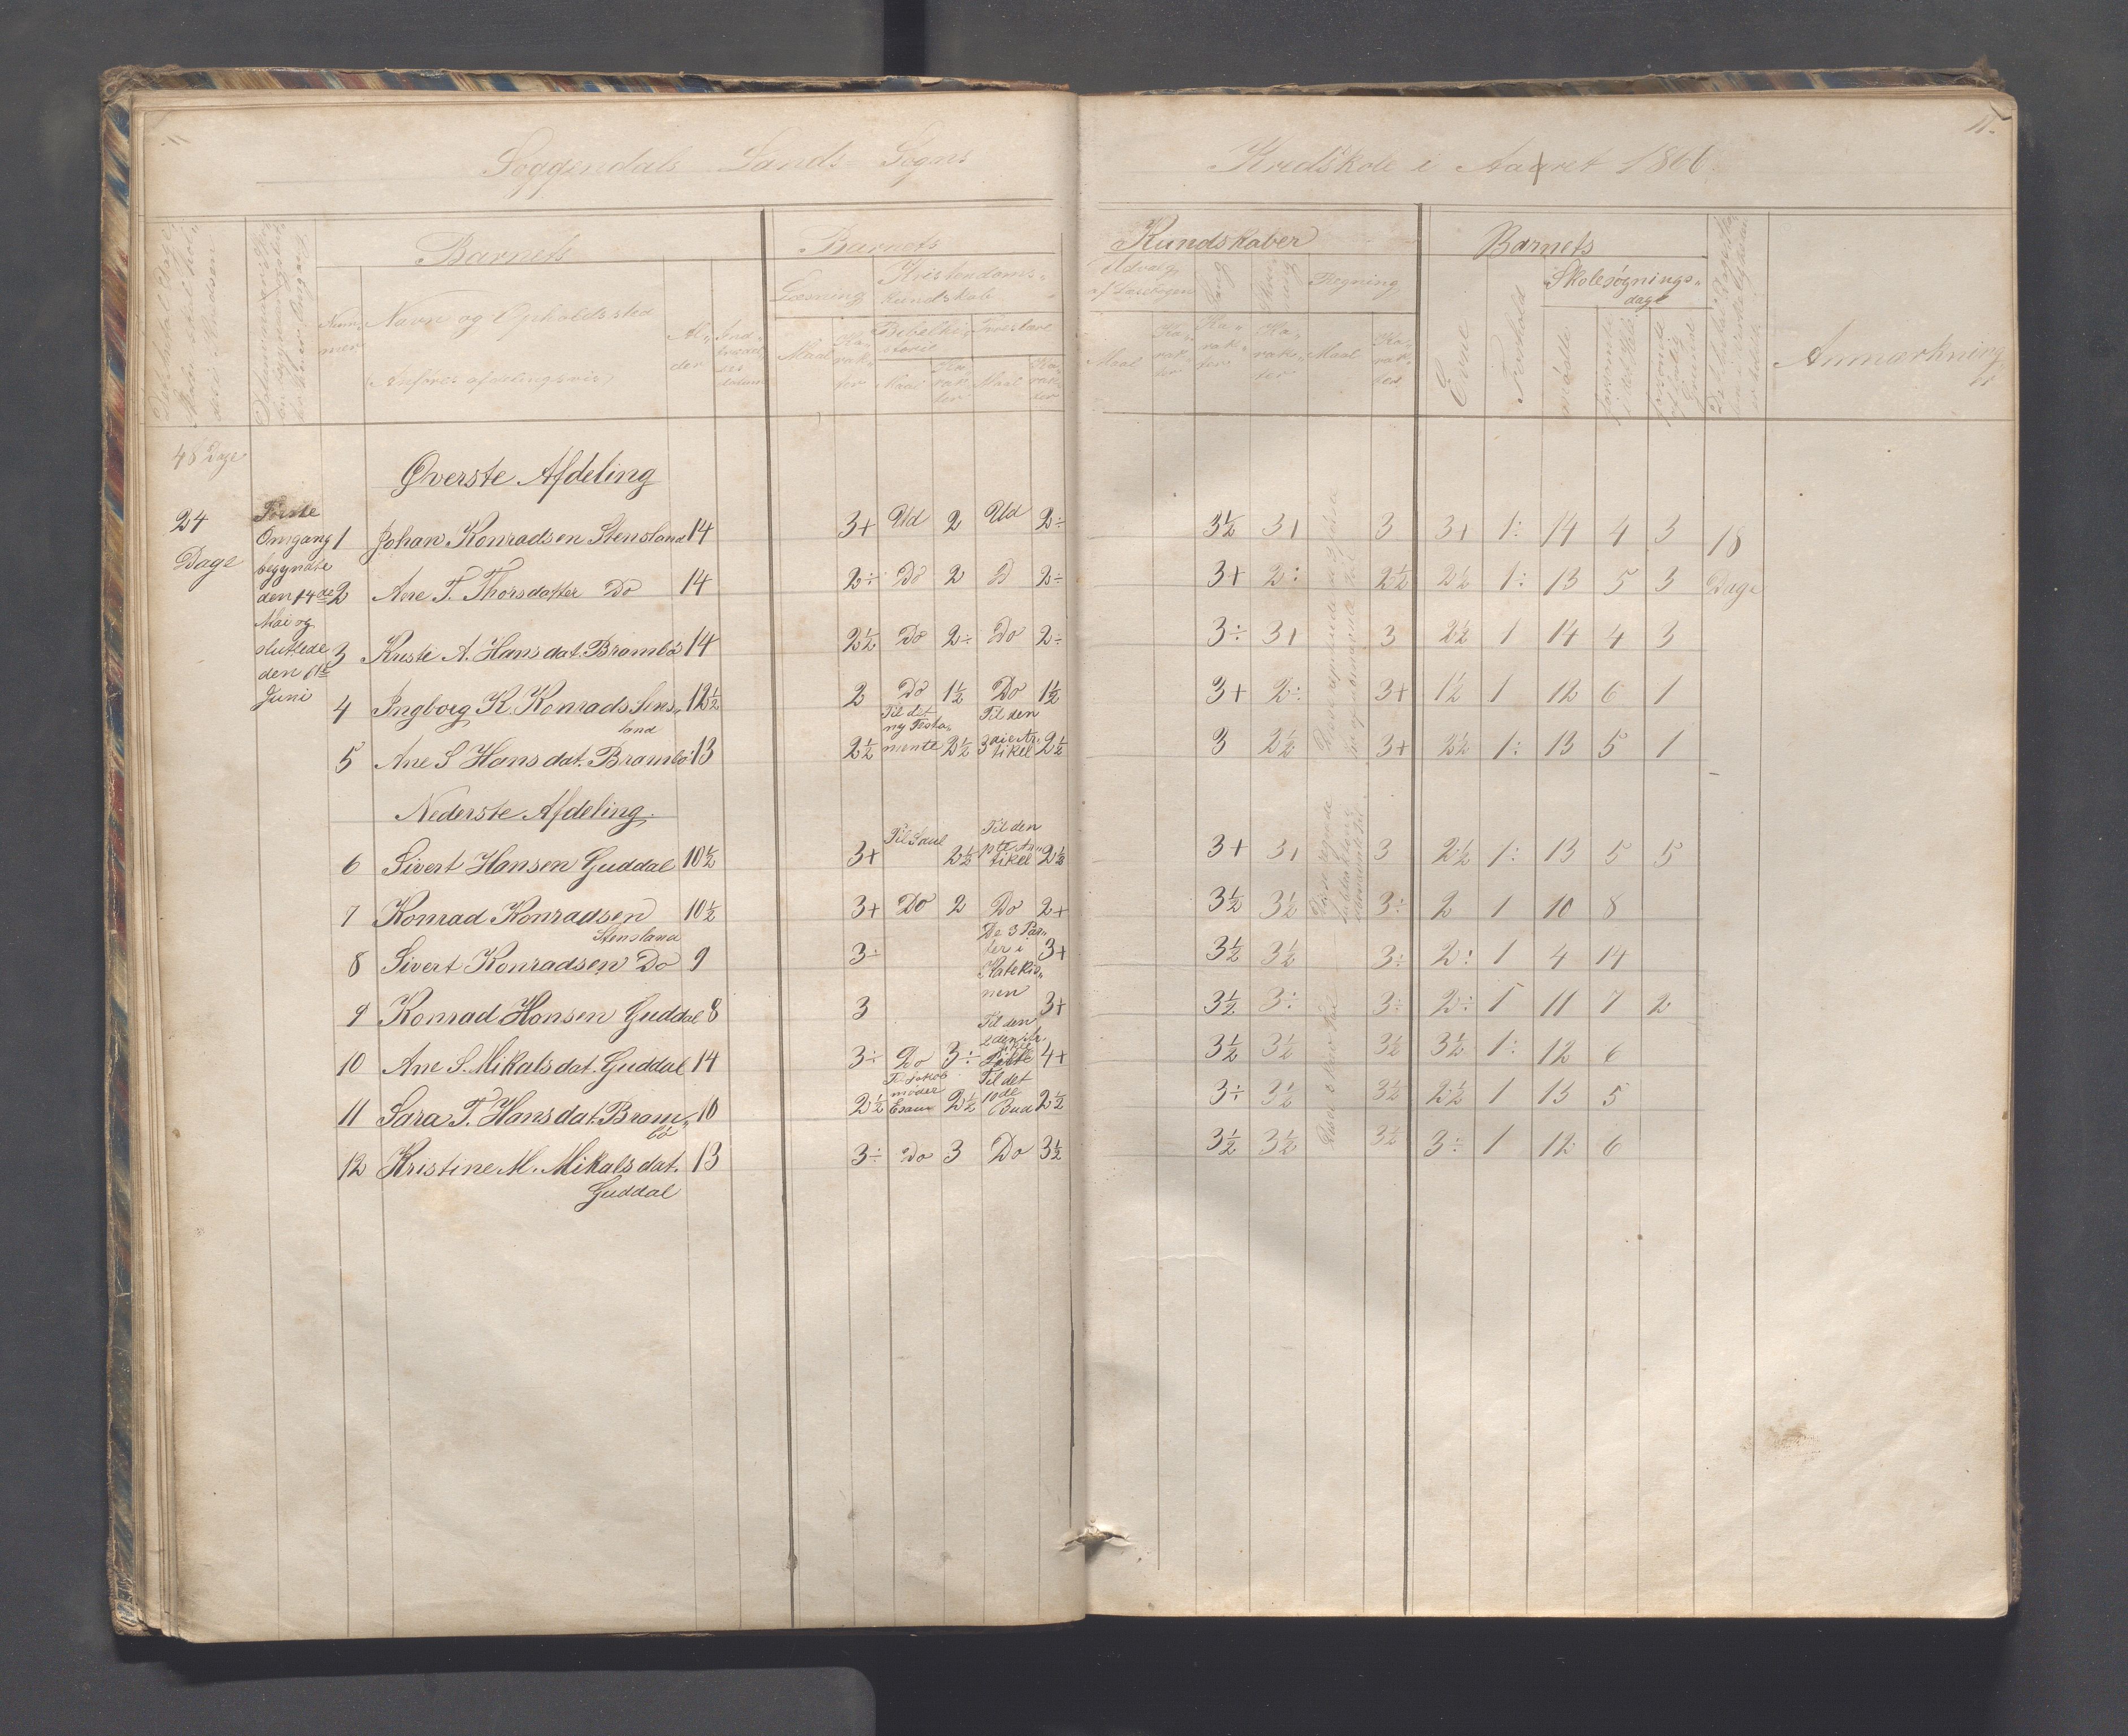 Soggendals Lands-Sogns
Kredskole i Aaret 1866
11.
Barnets
Barnets
Kundskaber
Barnets
Nummer
Navn og Opholdssted
(Anføres afdelingsvis)
Alder
Læsning
Kristendomskundskab
Bibelhistorie
Troeslære
Maal
Karakter
Maal
Karakter
Maal
Karakter
Udvalg af Læsebogen
Sang
Skrivning
Regning
Maal
Karakter
Karakter
Karakter
Maal
Karakter
Evne
Forhold
Skolesøgningsdage
mødte
Anmærkning
48 Dage
Øverste Afdeling
24 Dage
Første
Omgang
begyndte
den 14de
Mai og
sluttede
den
Juni
1 Johan Konradsen Stensland 14 3+ Ud 2 Ud 2÷ 3½ 3+ 3 3+ 1: 14 4 3 18
2 Ane T. Thorsdatter Do 14 2÷ Do 2 D 2÷ 3+ 2: 2½ 2½ 1: 13 5 3 Dage
3 Kriste A. Hansdat. Brambø 14 2½ Do 2÷ Do 2÷ 3÷ 3+ 3 2½ 1 14 4 3
4 Ingborg K. Konrads Stens„ 12½ 2 Do 1½ Do 1½ 3+ 2: 3+ 1½ 1 12 6 1
land
Til det
ny Testa„
mente
Til den
3die Ar„
tikel
5 Ane S Hansdat. Brambø 13 2½ 2½ 2½ 3 2½ 3+ 2½ 1: 13 5 1
Nederste Afdeling.
Til den
1ste Ar„
tikel
6 Sivert Hansen Guddal 10½ 3+ Til Saul 2½ 2½ 3+ 3+ 3 2½ 1: 13 5 5
7 Konrad Konradsen 10½ 3+ Do 2 Do 2+ 3½ 3½ 3÷ 2 1 10 8
Stensland
De 3 Par„
ter i
Katekis„
men
8 Sivert Konradsen Do 9 3÷ 3+ 3½ 3½ 3÷ 2: 1 4 14
9 Konrad Hansen Guddal 8 3 3+ 3½ 3÷ 3÷ 2÷ 1 11 7 2
Til den
10 Ane S. Mikalsdat. Guddal 14 3÷ Do 3÷ 4+ 3½ 3½ 3½ 3½ 1: 12 6
Til Jakob
møder
Esau
Til det
10de
Bud
11 Sara T. Hansdat. Bram„ 10 2½ 2½ 2½ 3÷ 3½ 3½ 2½ 1 13 5
bø
12 Kristine M. Mikalsdat. 13 3÷ Do 3 Do 3½ 3½ 3½ 3½ 3÷ 1 12 6
Guddal